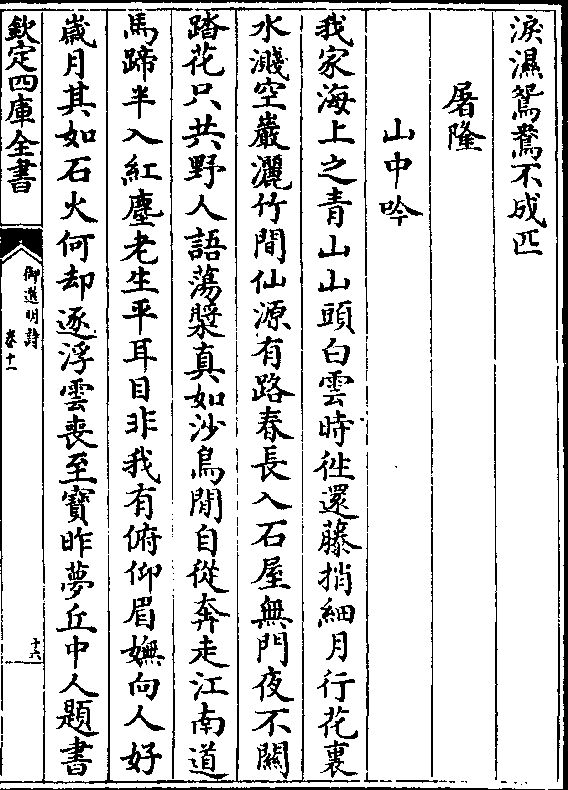 淚濕鴛鴦不成匹
屠隆
山中吟
我家海上之青山山頭白雲時徃還藤捎細月行花裏
水濺空巖灑竹間仙源有路春長入石屋無門夜不關
踏花只共野人語蕩槳真如沙鳥閒自從奔走江南道
馬蹄半入紅塵老生平耳目非我有俯仰眉嫵向人好
歲月其如石火何却逐浮雲喪至寶昨夢丘中人題書
欽定四庫全書
御選明詩
卷十一
十六